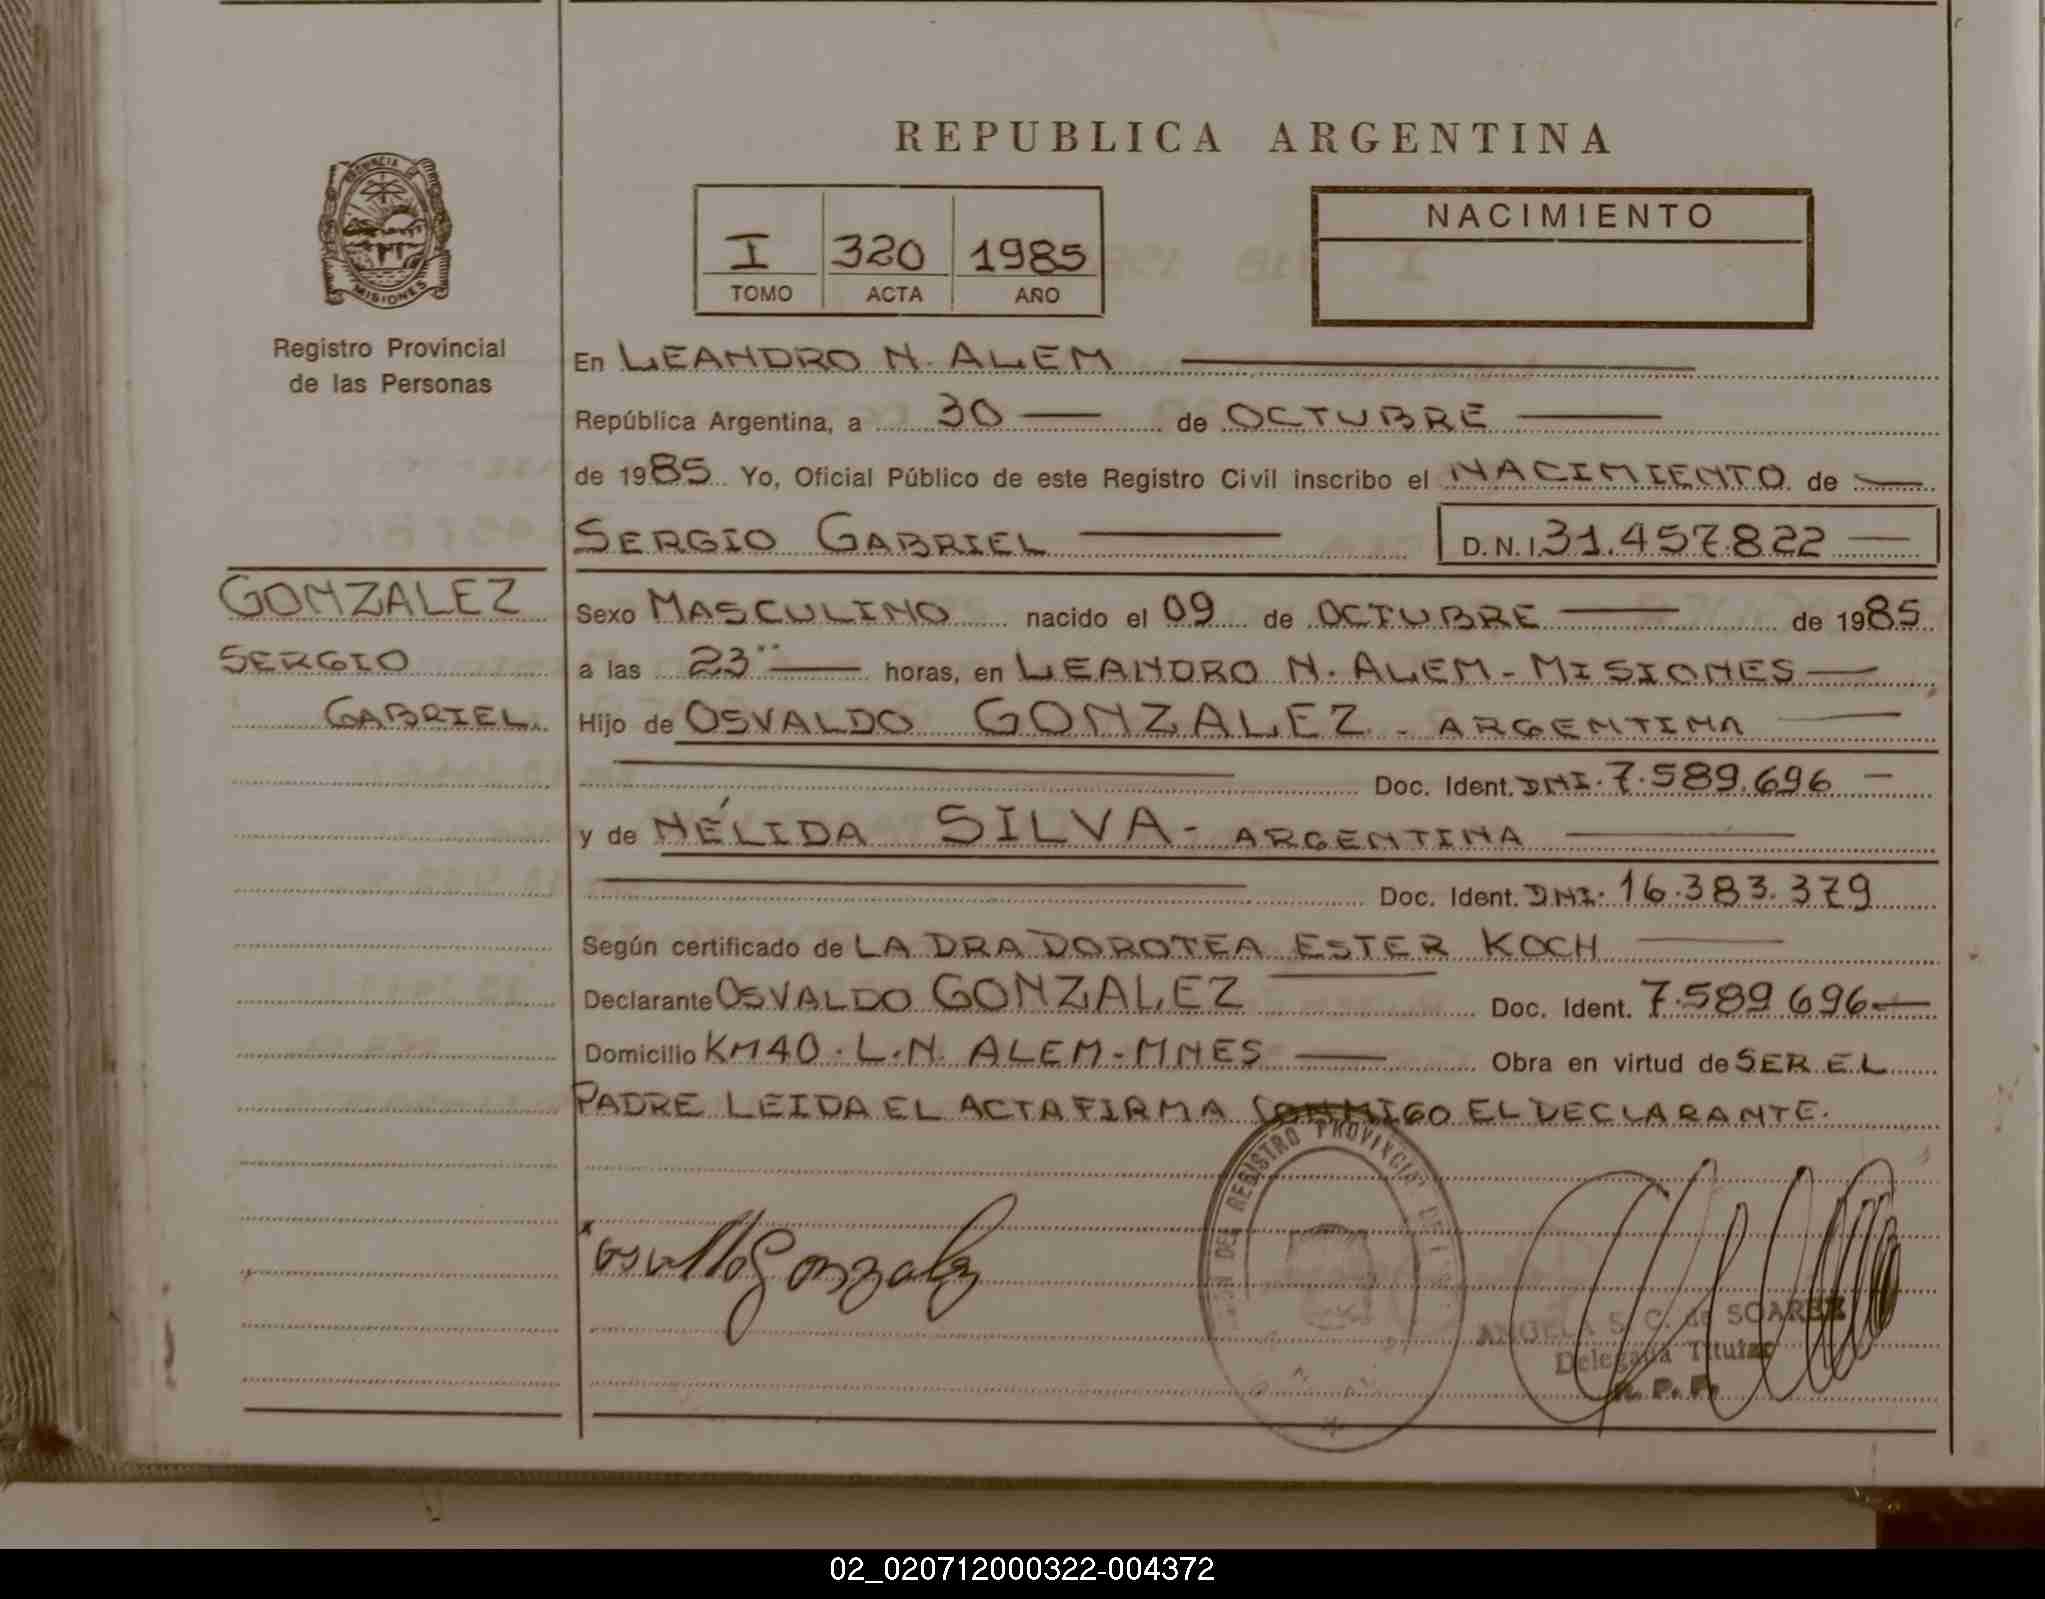 REPUBLICA ARGENTINA
PROVINCIA
MISIONES
Registro Provincial
de las Personas
I 320 1985
TOMO ACTA AÑO
NACIMIENTO
En LEANDRO N. ALEM
República Argentina, a 30 de OCTUBRE
de 1985 Yo, Oficial Público de este Registro Civil inscribo el NACIMIENTO de
SERGIO GABRIEL D.N.I. 31.457.822
GONZALEZ
SERGIO
GABRIEL.
Sexo MASCULINO nacido el 09 de OCTUBRE de 1985
a las 23 horas, en LEANDRO N. ALEM - MISIONES
Hijo de OSVALDO GONZALEZ - ARGENTINA
Doc. Ident. DNI. 7.589.696
y de NÉLIDA SILVA - ARGENTINA
Doc. Ident. DNI. 16.383.379
Según certificado de LA DRA DOROTEA ESTER KOCH
Declarante OSVALDO GONZALEZ Doc. Ident. 7.589 696
Domicilio KM40 . L.N. ALEM - MNES Obra en virtud de SER EL
PADRE LEIDA EL ACTA FIRMA CONMIGO EL DECLARANTE.
DEL REGISTRO PROVINCIAL DE
Osvaldo Gonzalez
ANGELA S. C. de SOAREZ
Delegada Titular
R. P. P.
02_020712000322-004372